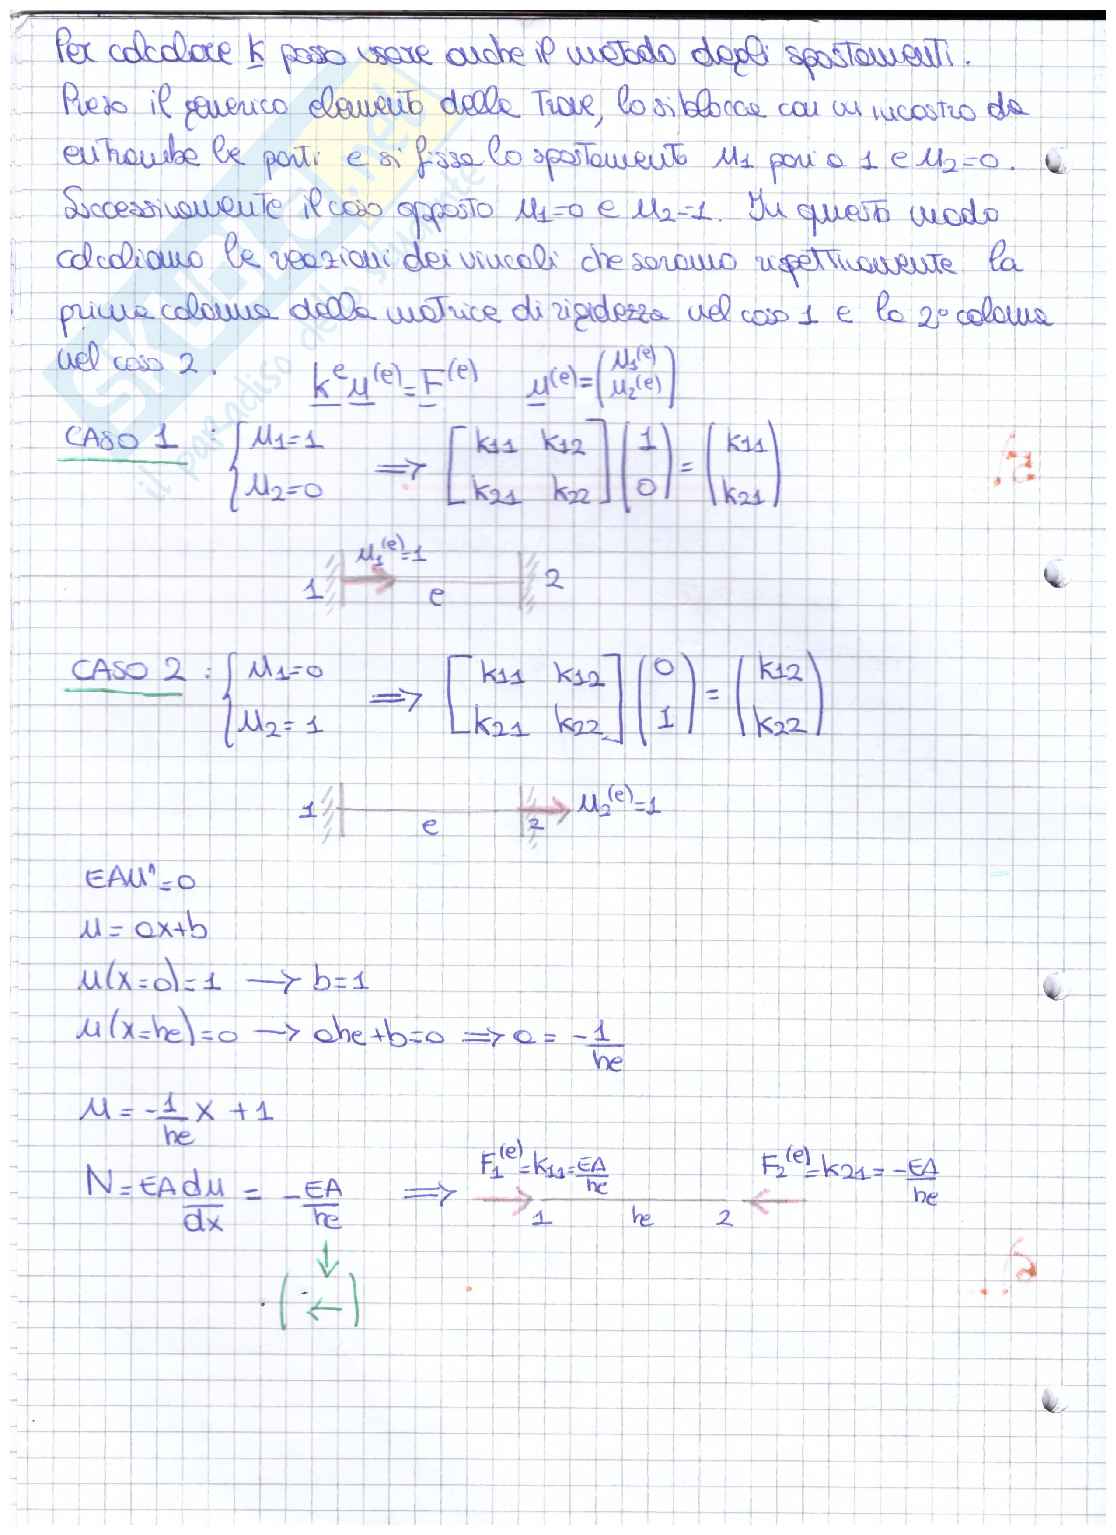 Per calcolare k posso usare anche il metodo degli spostamenti.
Preso il generico elemento della Trave, lo si blocca con un incastro da
entrambe le parti e si fissa lo spostamento u1 pari a 1 e u2=0.
Successivamente il caso opposto u1=0 e u2=1. In questo modo
calcoliamo le reazioni dei vincoli che saranno rispettivamente la
prima colonna della matrice di rigidezza nel caso 1 e la 2ª colonna
nel caso 2.
k^e u^(e) = F^(e) u^(e) = (u1^(e) u2^(e))
CASO 1 : { u1=1 u2=0 => [k11 k12 k21 k22] (1 0) = (k11 k21)
u1^(e)=1
1 e 2
CASO 2 : { u1=0 u2=1 => [k11 k12 k21 k22] (0 1) = (k12 k22)
1 e 2 u2^(e)=1
EAu''=0
u = ax+b
u(x=0)=1 → b=1
u(x=he)=0 → ahe+b=0 => a = -1/he
u = -1/he x + 1
N = EA du/dx = -EA/he => F1^(e)=k11=EA/he F2^(e)=k21=-EA/he
1 he 2
(←)
SKUOLA.net
il paradiso dello studente